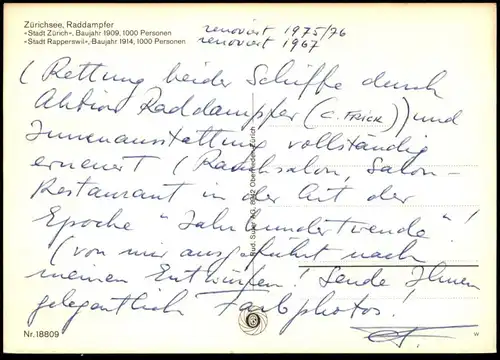 Zürichsee, Raddampfer
«Stadt Zürich», Baujahr 1909, 1000 Personen renoviert 1975/76
«Stadt Rapperswil», Baujahr 1914, 1000 Personen renoviert 1967
(Rettung beider Schiffe durch
Aktion Raddampfer (C. FRICK)) und
Innenausstattung vollständig
erneuert (Rauchsalon, Salon-
Restaurant in der Art der
Epoche "Jahrhundertwende"!
(von mir ausgeführt nach
meinen Entwürfen! Sende Ihnen
gelegentlich Farbphotos!
Nr. 18809
W
Rud. Suter AG, 8942 Oberrieden-Zürich